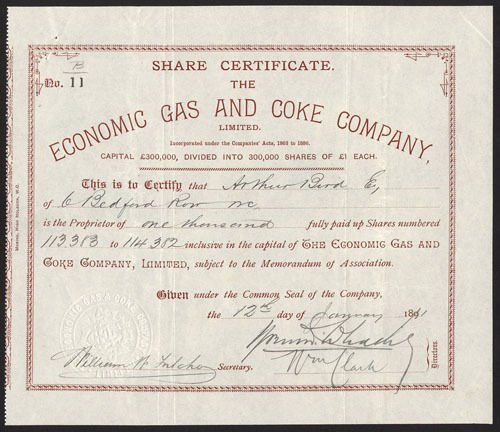 SHARE CERTIFICATE.
B
No. 11
THE
ECONOMIC GAS AND COKE COMPANY,
LIMITED.
Incorporated under the Companies' Acts, 1862 to 1886.
CAPITAL £300,000, DIVIDED INTO 300,000 SHARES OF £1 EACH.
This is to Certify that Arthur Bird E,
of 6 Bedford Row WC
is the Proprietor of one thousand fully paid up Shares numbered
113,383 to 114,382 inclusive in the capital of THE ECONOMIC GAS AND
COKE COMPANY, LIMITED, subject to the Memorandum of Association.
Given under the Common Seal of the Company,
the 12th day of January 1891
Wm Clark
Directors.
William W
Secretary.